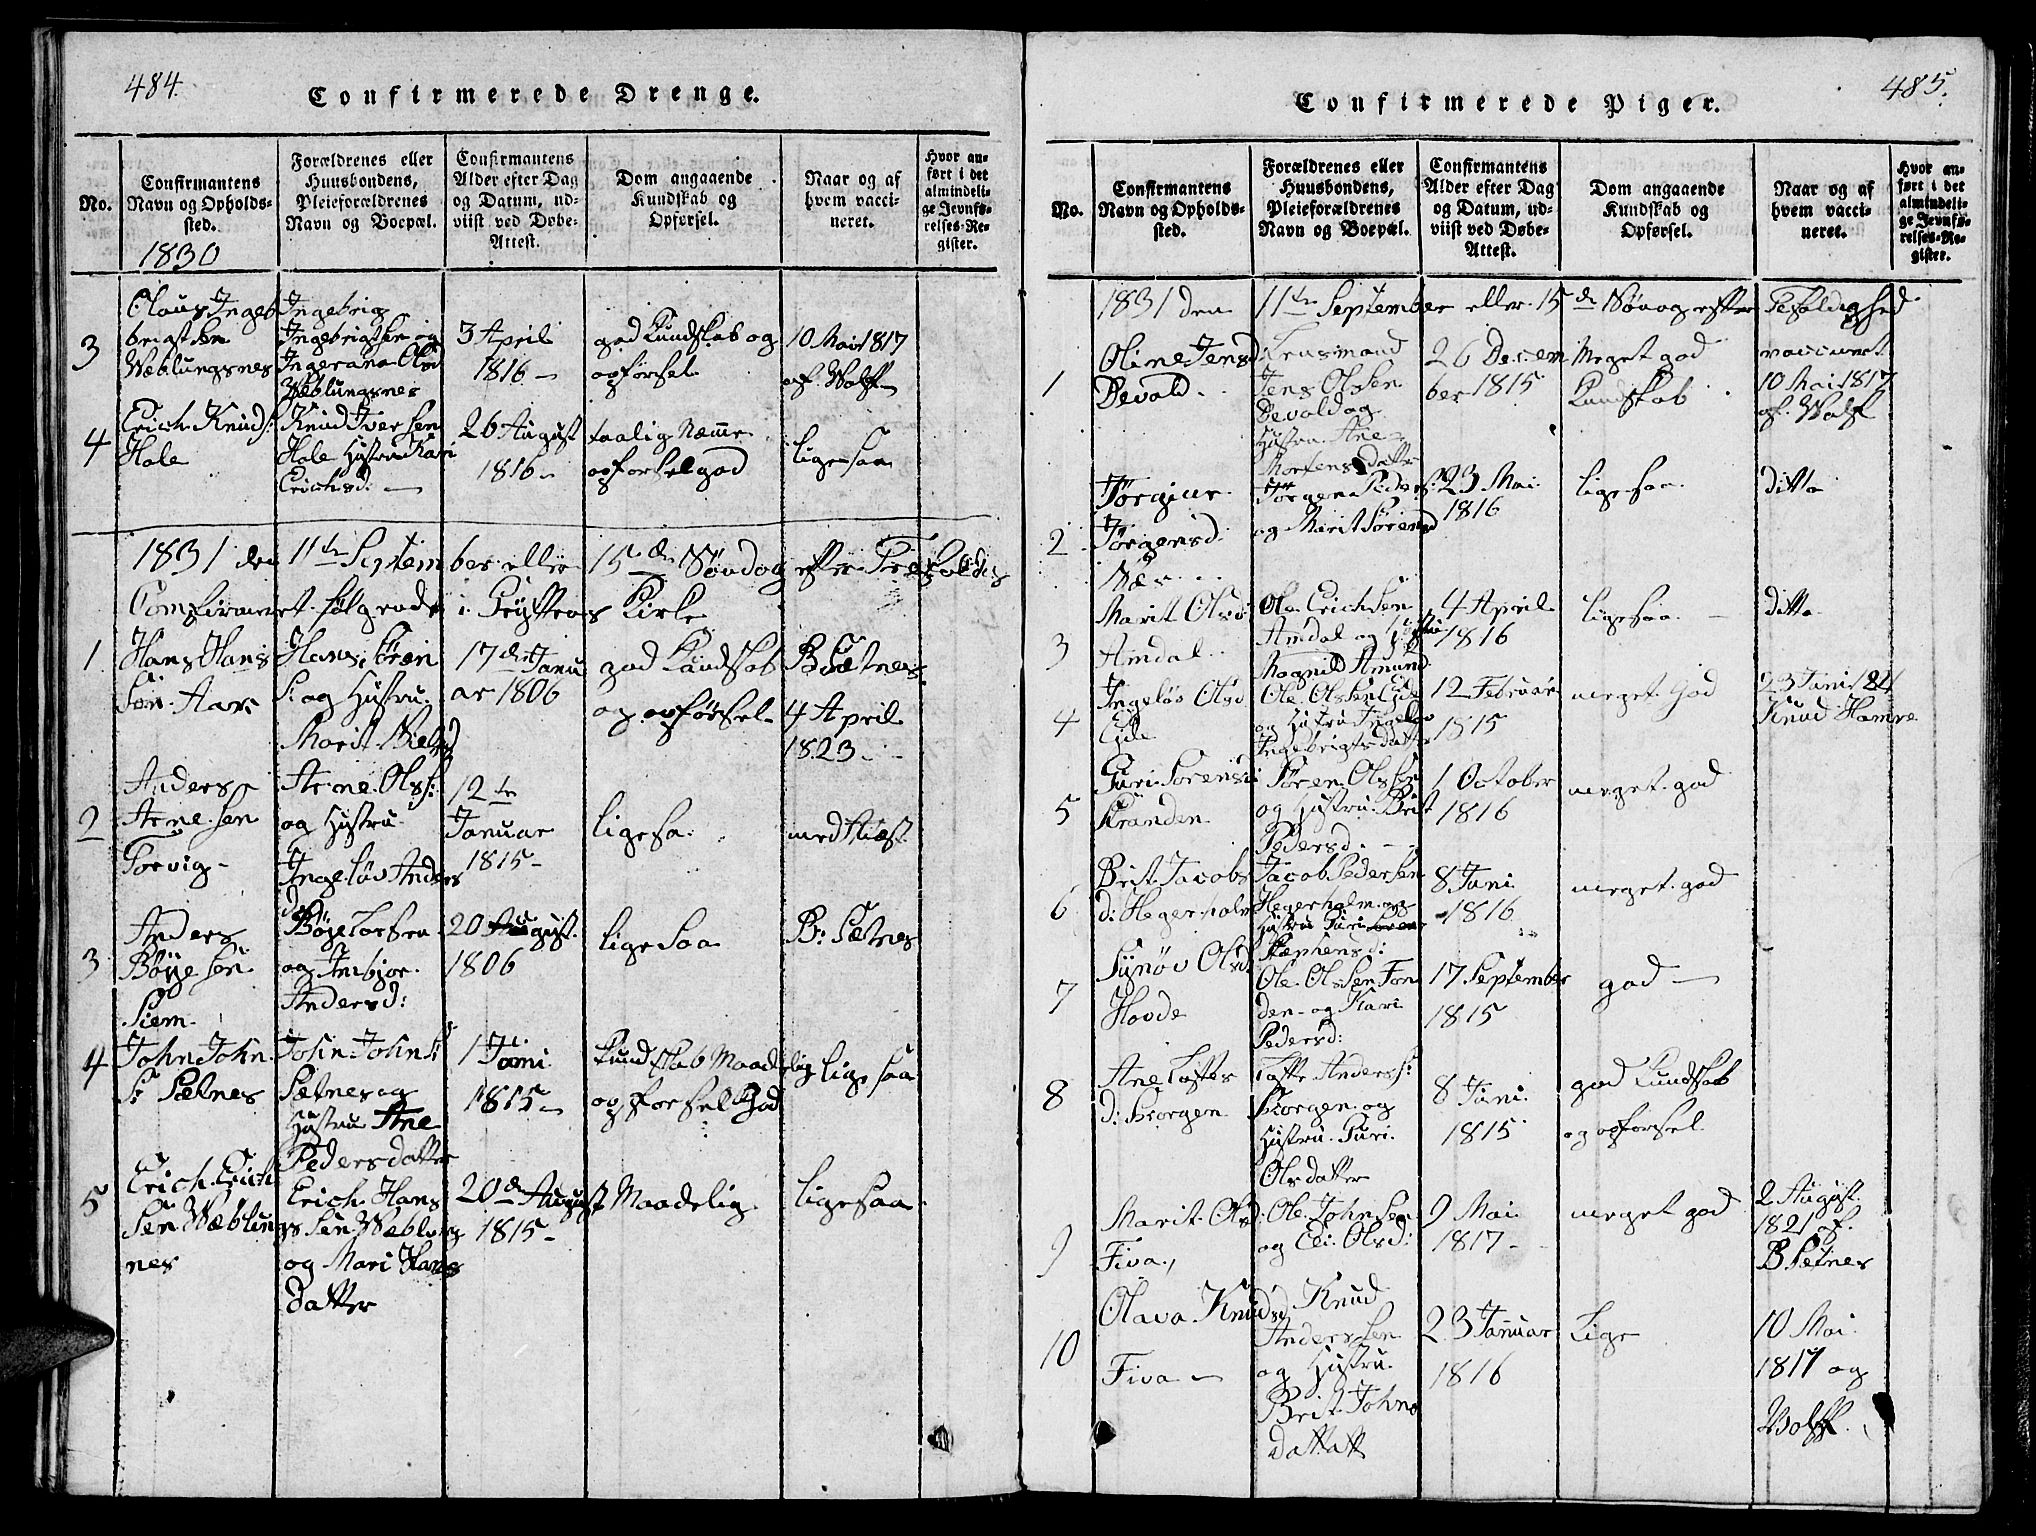 484.
Confirmerede Drenge.
No.
Confirmantens
Navn og Opholds-
sted.
1830
Forældrenes eller
Huusbondens,
Pleieforældrenes
Navn og Boepæl.
Confirmantens
Alder efter Dag
og Datum, ud-
viist ved Døbe-
Attest.
Dom angaaende
Kundskab og
Opførsel.
Naar og af
hvem vacci-
neret.
Hvor an-
ført i det
almindeli-
ge Jevnfø-
relses-Re-
gister.
3
Olaus Ingeb
brigtsen
Wæblungsnes
Ingebrig
Ingebrigtsen og
Ingeranna Olsd
Wæblungsnes
3 April
1816 -
god Kundskab og
opførsel
10 Mai 1817
af Wolff
4
Erich Knuds:
Hole
Knud Iversen
Hole Hustru Kari
Erichsd: -
26 August
1816 -
taalig Næmme
opførsel god
ligesaa
1831 den 11te September eller 15de Søndag efter Trefoldig
Comfirmeret følgende i Gryttens Kirke
1
Hans Hans
Søn Aars
Hans Søren
S: og Hustru
Marit Nielsd
17de Janu
ar 1806
god Kundskab
og opførsel
B Sætnes
4 April
1823 -
2
Anders
Arnesen
Torvig -
Arne Ols:
og Hustru
Ingeløv Anders
d:
12te
Januar
1815 -
ligesa
med Attest
3
Anders
Bøyesen
Siem
Bøye Larsen
og Imbjor
Andersd:
20 August
1806
ligesaa
B: Sætnes
4
John John
S: Sætnes
John Johns:
Sætnes og
Hustru Ane
Pedersdatter
1 Juni
1815 -
Kundskab Maadelig
opførsel God
ligesaa
5
Erich Erich
Sen Wæblungs
nes
Erich Hans
Sen Wæblung
og Mari Hans
Datter
20de August
1815 -
Maadelig
ligesaa
485.
Confirmerede Piger.
No.
Confirmantens
Navn og Opholds-
sted.
Forældrenes eller
Huusbondens,
Pleieforældrenes
Navn og Boepæl.
Confirmantens
Alder efter Dag
og Datum, ud-
viist ved Døbe-
Attest.
Dom angaaende
Kundskab og
Opførsel.
Naar og af
hvem vacci-
neret.
Hvor an-
ført i det
almindeli-
ge Jevnfø-
relses-Re-
gister.
1831 den 11te September eller 15de Søndag efter Trefoldighed
1
Oline Jensd:
Devold
Lensmand
Jens Olssen
Devold og
Hustru Ane
Mortensdatter
26 Decem
ber 1815
Meget god
Kundskab
vaccineret
10 Mai 1817
af Wolf
2
Jørgine
Jørgensd:
Næs
Jørgen Peders:
og Marit Sørensd
23 Mai
1816
ligesaa
ditto
3
Marit Olsd:
Amdal
Ole Erichsen
Amdal og Hustru
Magnild Amund
4 April
1816
ligesaa
ditto
4
Ingeløv Olsd
Eide
Ole Olssen Eide
og Hustru Ingeløv
Ingebrigtsdatter
12 Februar
1815
meget God
23 Juni 1821
Knud Hamre
5
Guri Sørensd:
Stranden
Søren Olssen
og Hustru Brit
Pedersd:
1 October
1816
meget god
6
Brit Jacobs
d: Hegerholm
Jacob Pedersen
Hegerholm og
Hustru Guri
Stephensd:
8 Juni
1816
meget god
7
Synøv Olsd.
Hovde
Ole Olssen
den og Kari
Pedersd:
17 September
1815
god -
8
Ane Toftes
d: Skorgen
Tofte Anders:
Skorgen og
Hustru Guri
Olsdatter
8 Juni
1815
god Kundskab
og opførsel
9
Marit Olsd:
Fiva
Ole Johnsen
og Eli Olsd:
9 Mai
1817 -
meget god
2 August
1821 af
B Sætnes
10
Olava Knudsd
Fiva -
Knud
Anderssen
og Hustru
Brit Johns
dattatt
23 Januar
1816
Lige
10 Mai
1817 og
Wolff